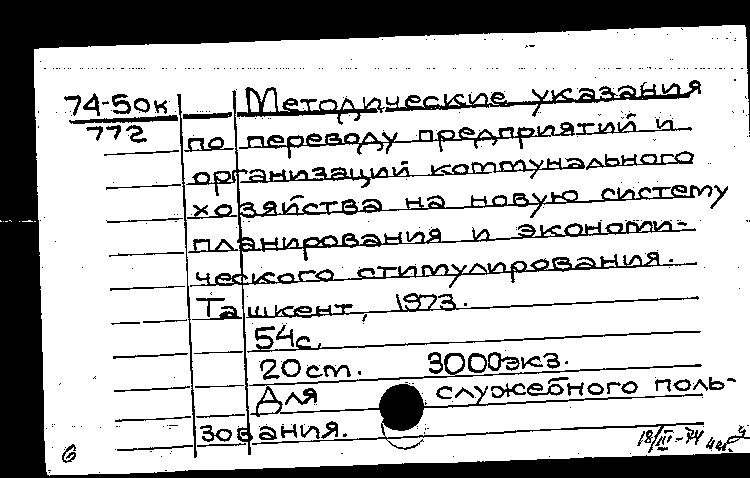 74-50к Методические указания
772 по переводу предприятий и
организаций коммунального
хозяйства на новую систему
планирования и экономи-
ческого стимулирования.
Ташкент, 1973.
54с.
20 cm. 3000экз.
Для служебного поль-
зования.
6 18/III-74